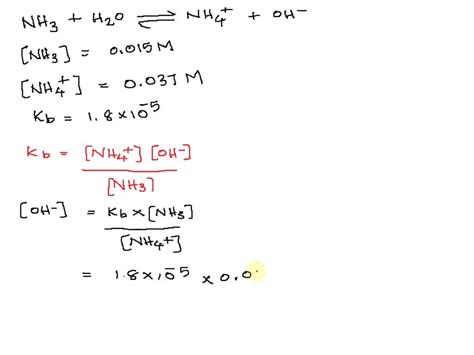 NH3 + H2O ⇌ NH4+ + OH-
[NH3] = 0.015 M
[NH4+] = 0.037 M
Kb = 1.8×10-5
Kb = [NH4+] [OH-]
[NH3]
[OH-] = Kb × [NH3]
[NH4+]
= 1.8×10-5 × 0.0